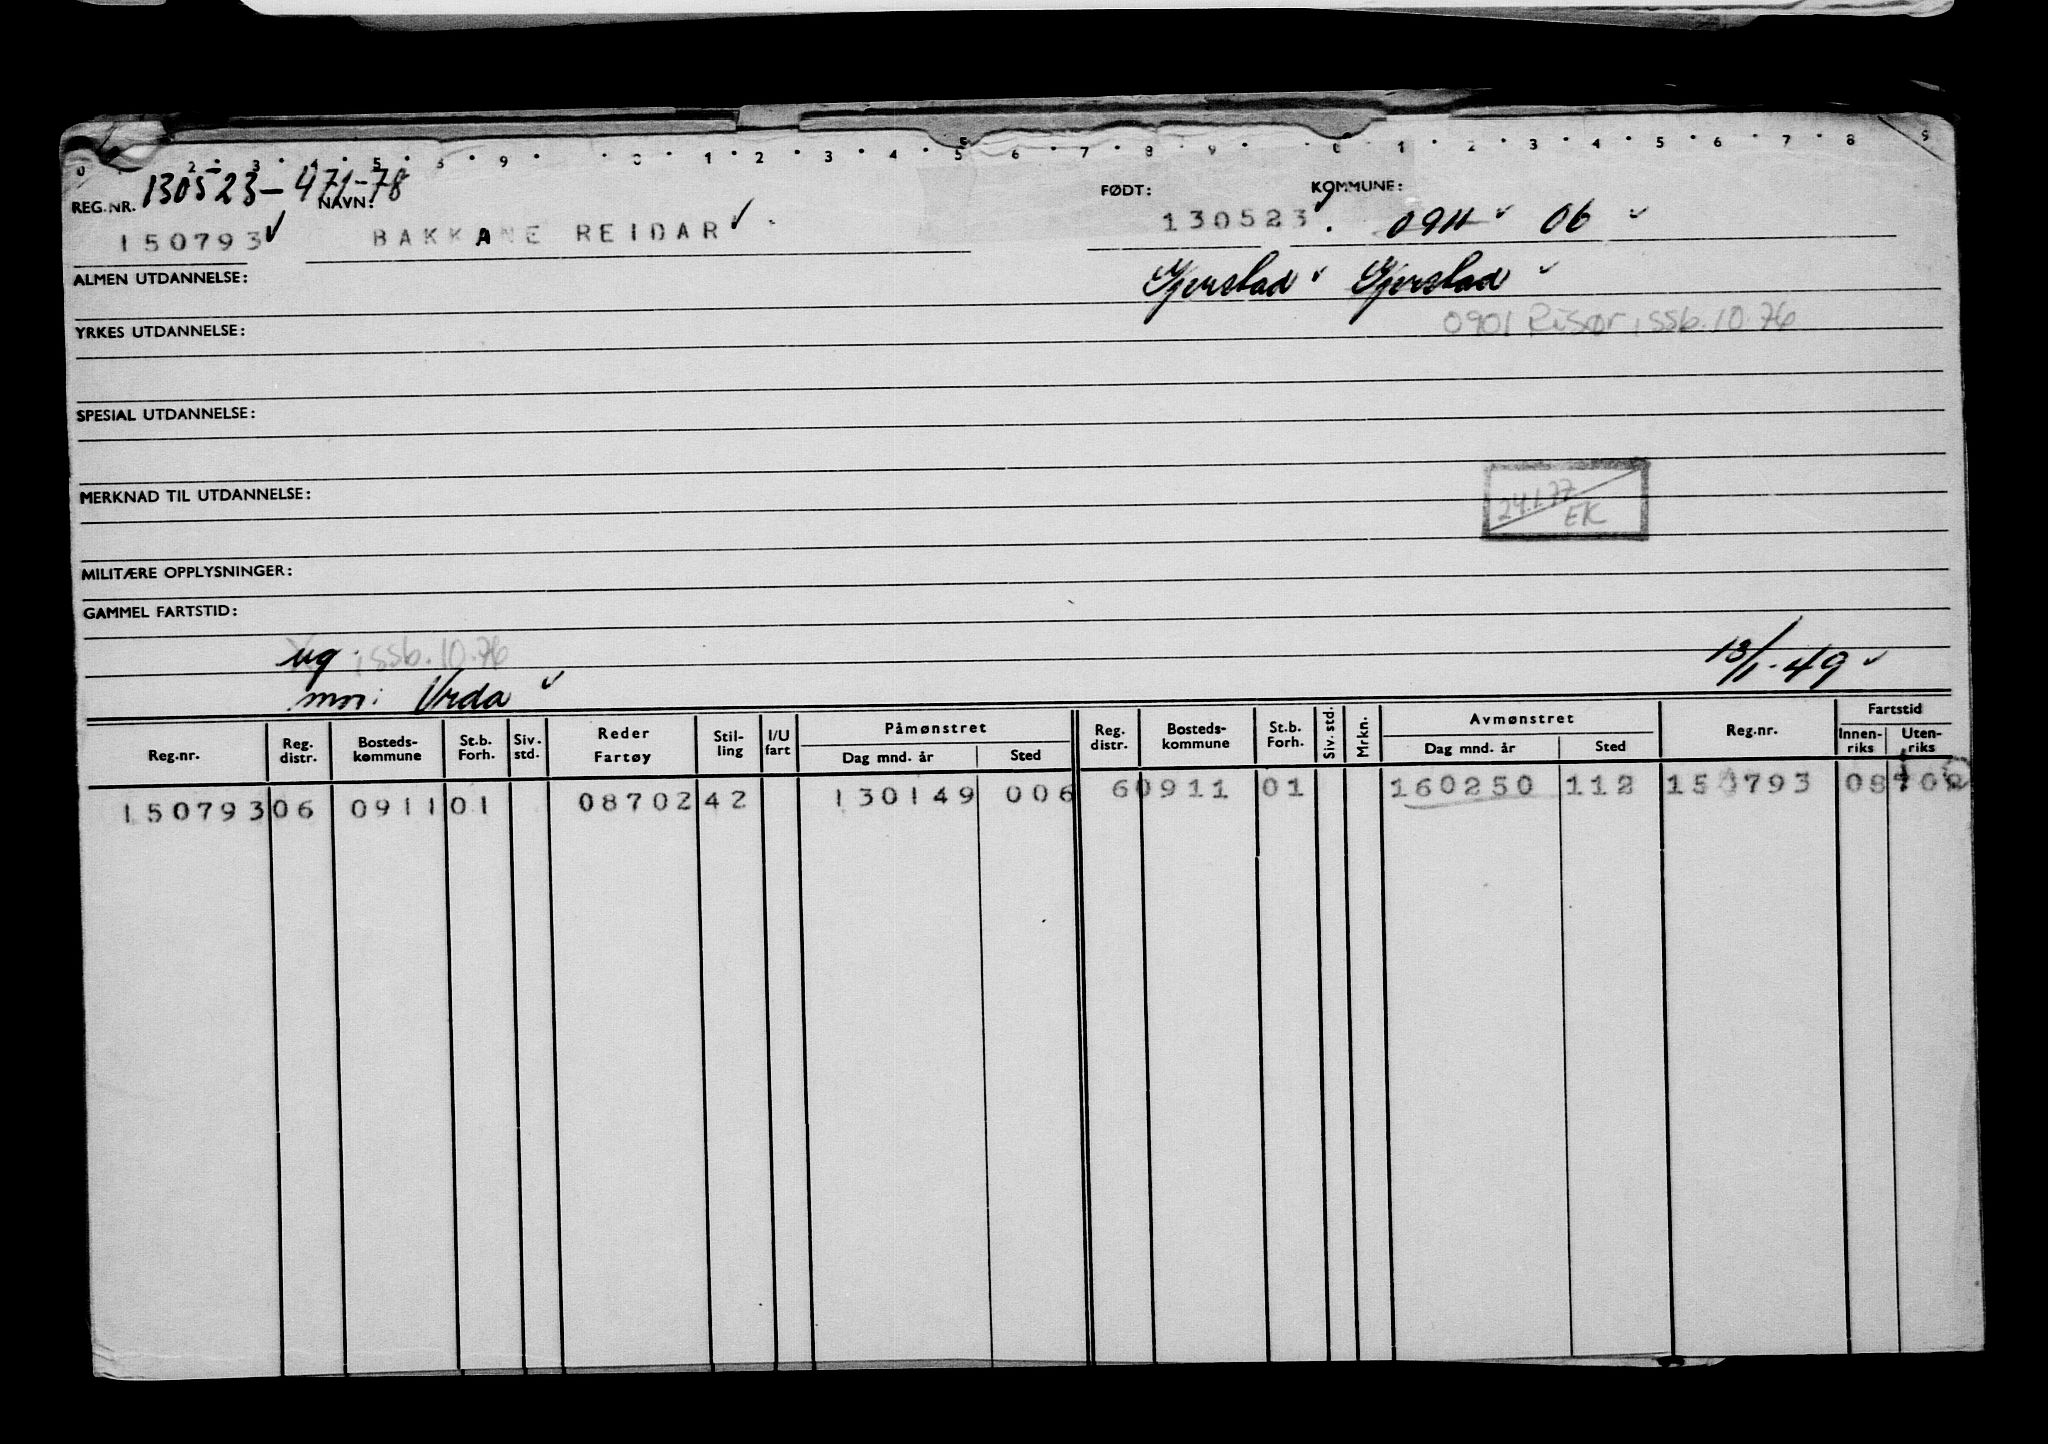 0 2 3 4 5 8 9 0 1 2 3 4 5 6 7 8 9 0 1 2 3 4 5 6 7 8 9
130523-471-78
REG.NR. NAVN: FØDT: KOMMUNE:
150793 ✓ BAKKANE REIDAR ✓ 130523 ✓ 0911 ✓ 06 ✓
ALMEN UTDANNELSE: Gjerstad ✓ Gjerstad ✓
YRKES UTDANNELSE: 0901 Risør, ssb. 10.76
SPESIAL UTDANNELSE:
MERKNAD TIL UTDANNELSE:
24.1.77
EK
MILITÆRE OPPLYSNINGER:
GAMMEL FARTSTID:
ug , ssb. 10.76
mor: Urda ✓ 13/1-49 ✓
Reg.nr. Reg. distr. Bosteds-kommune St.b. Forh. Siv. std. Reder Fartøy Stil-ling I/U fart Påmønstret Dag mnd. år Sted Reg. distr. Bosteds-kommune St.b. Forh. Siv. std. Mrkn. Avmønstret Dag mnd. år Sted Reg.nr. Fartstid Innen-riks Uten-riks
150793 06 0911 01 08702 42 130149 006 6 0911 01 160250 112 150793